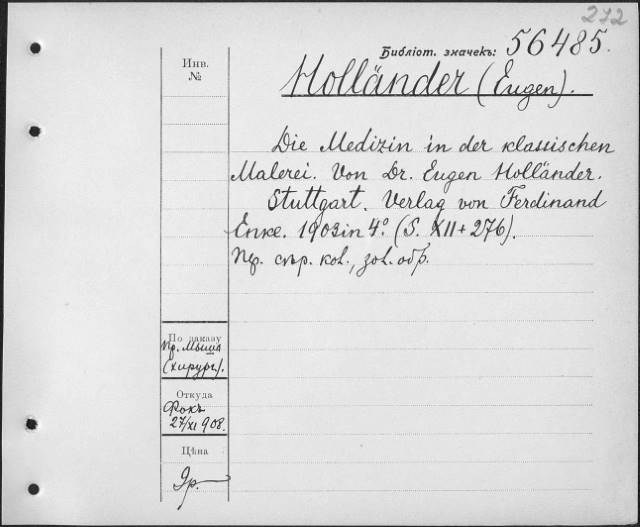 272
Библіот. значекъ: 56485.
Инв.
№
Holländer (Eugen).
Die Medizin in der klassischen
Malerei. Von Dr. Eugen Holländer.
Stuttgart. Verlag von Ferdinand
Enke. 1903 in 4º. (S. XII + 276).
По заказу
Пр. Мыша
(хирург.).
Откуда
Фокъ
27/XI 908.
Цѣна
9р.